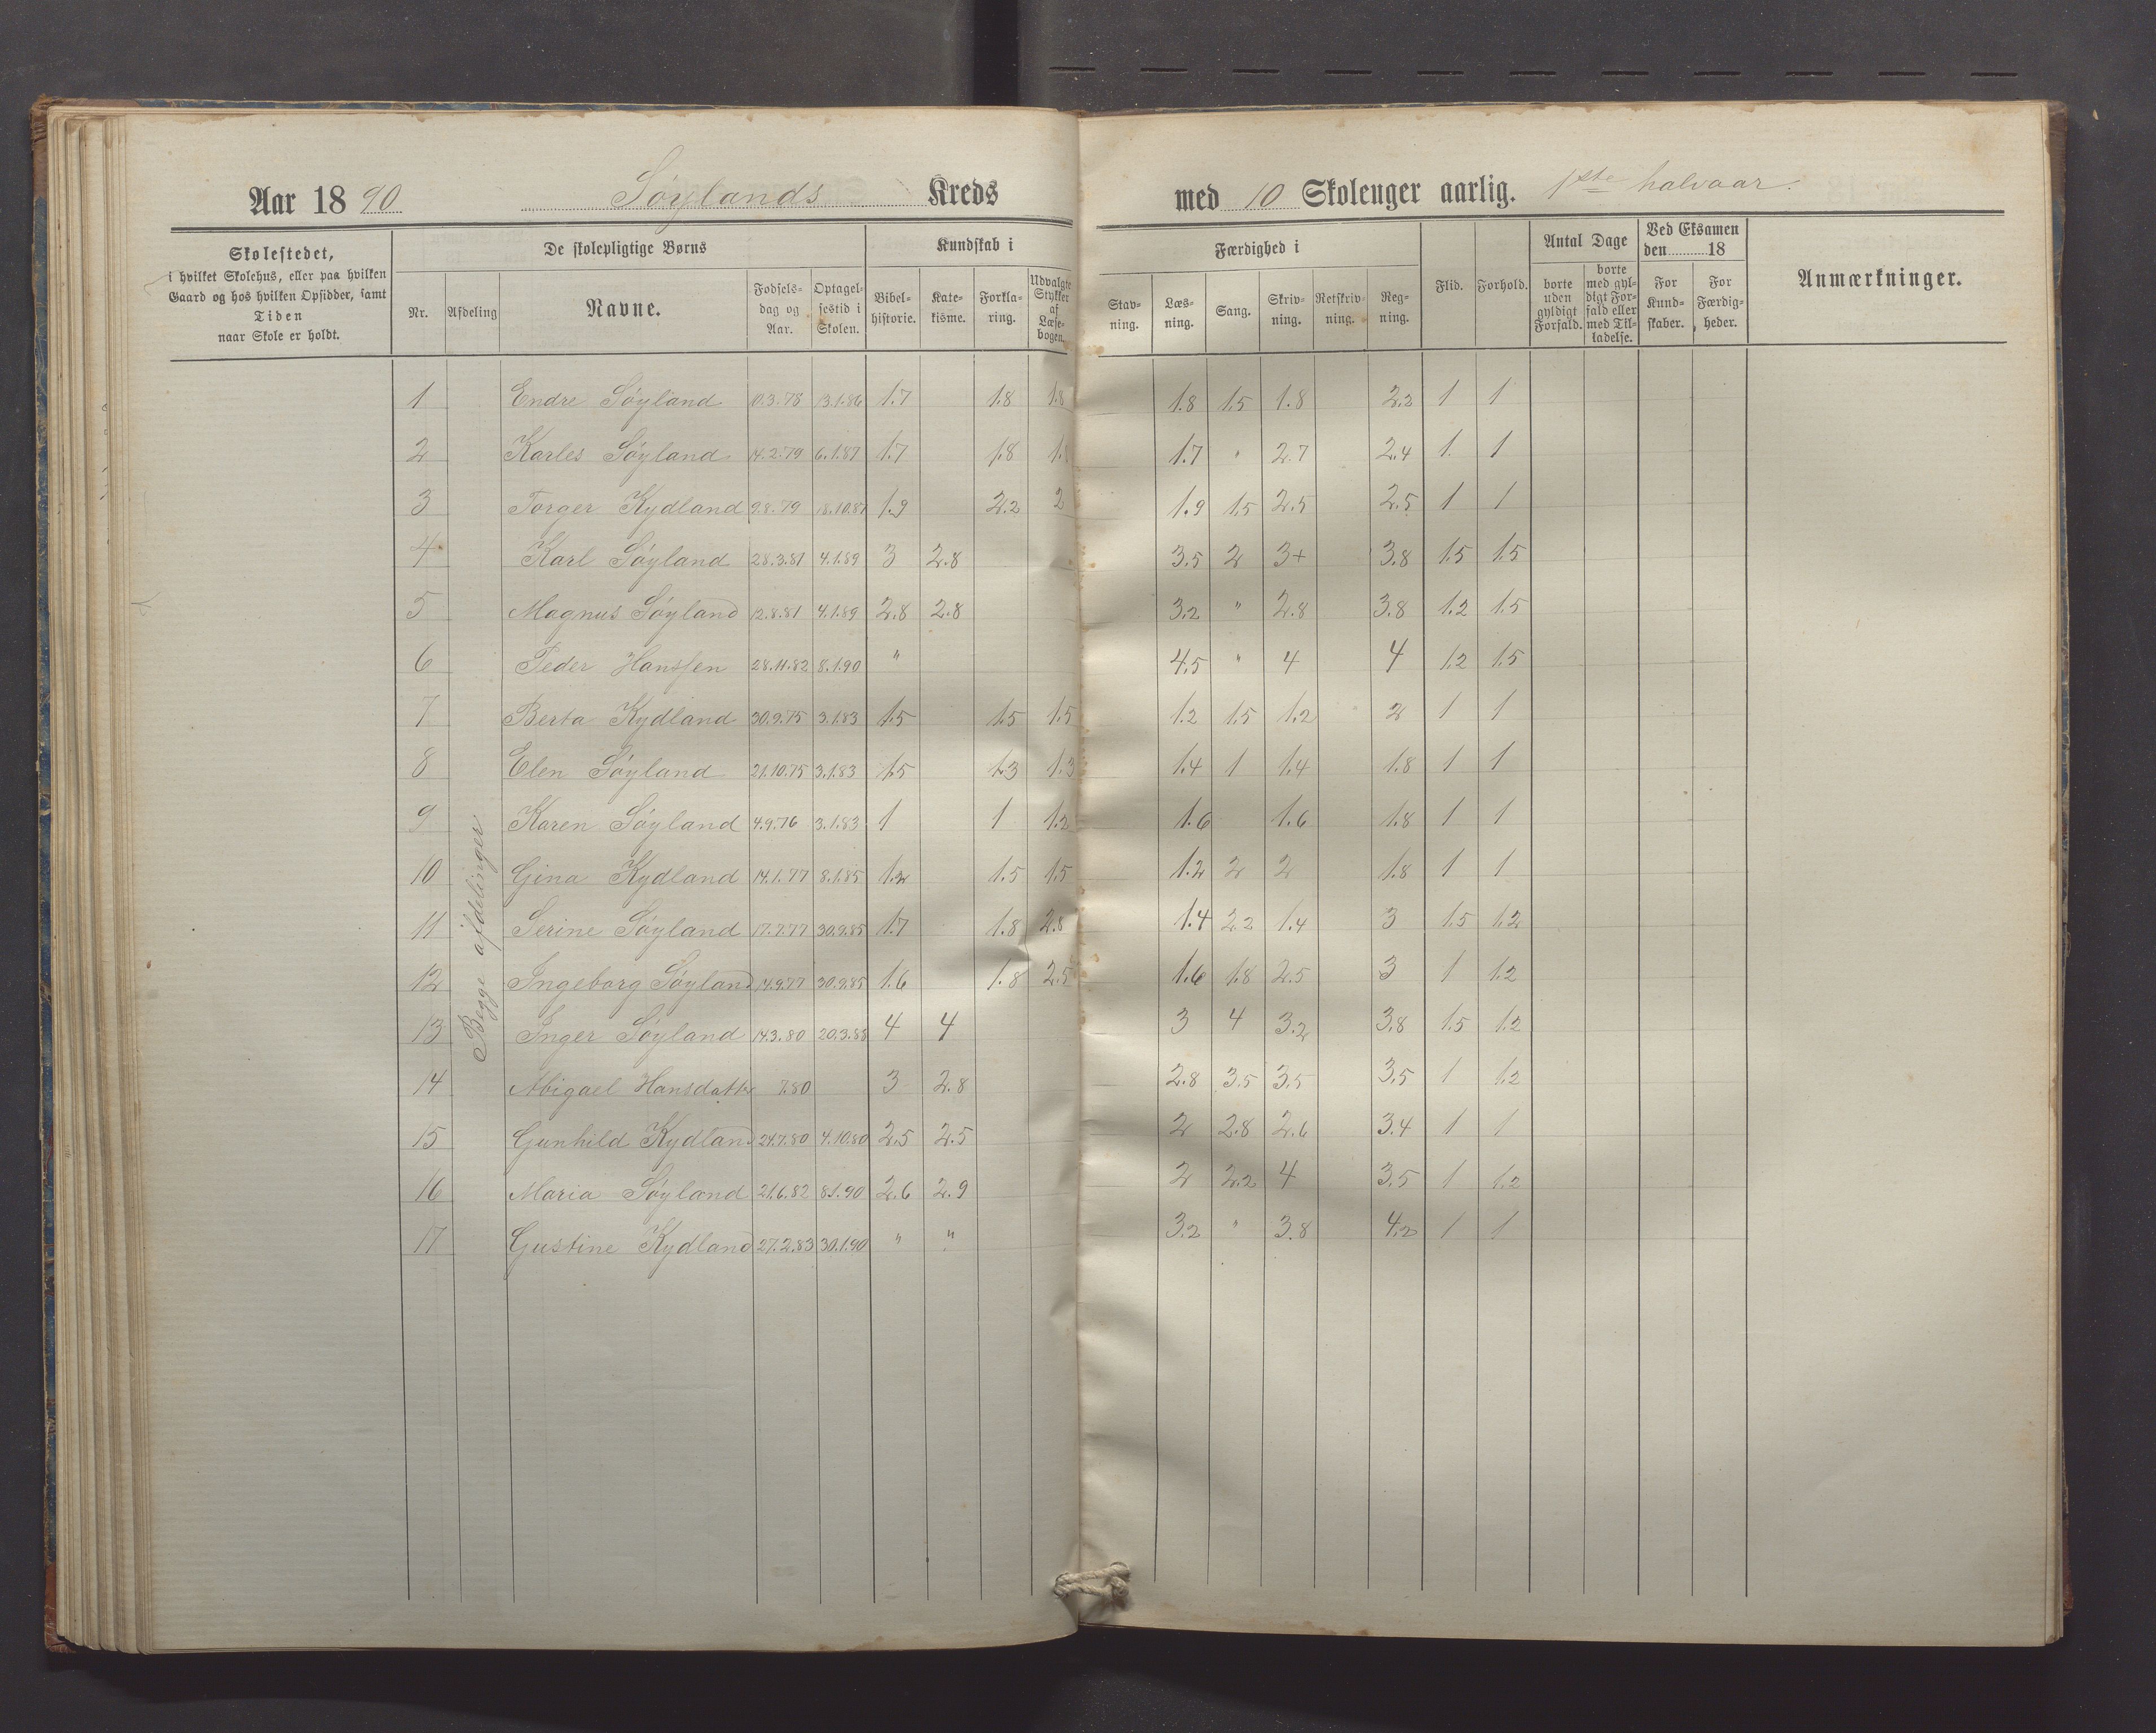 Aar 1890 Søylands Kreds med 10 Skoleuger aarlig. 1ste halvaar.
Skolestedet,
i hvilket Skolehus, eller paa hvilken
Gaard og hos hvilken Opsidder, samt
Tiden
naar Skole er holdt.
De skolepligtige Børns
Nr.
Afdeling
Navne.
Fødsels-
dag og
Aar.
Optagel-
sestid i
Skolen.
Kundskab i
Bibel-
historie.
Kate-
kisme.
Forkla-
ring.
Udvalgte
Stykker
af
Læse-
bogen.
Færdighed i
Stav-
ning.
Læs-
ning.
Sang.
Skriv-
ning.
Retskriv-
ning.
Reg-
ning.
Flid.
Forhold.
Antal Dage
borte
uden
gyldigt
Forfald.
borte
med gyl-
digt For-
fald eller
med Til-
ladelse.
Ved Eksamen
den 18
For
Kund-
skaber.
For
Færdig-
heder.
Anmærkninger.
Begge afdelinger
1 Endre Søyland 10.3.78 13.1.86 1.7 1.8 1.8 1.8 1.5 1.8 2.2 1 1
2 Karles Søyland 14.2.79 6.1.87 1.7 1.8 1.7 " 2.7 2.4 1. 1
3 Torger Kydland 9.8.79 18.10.87 1.9 2.2 2 1.9 1.5 2.5 2.5 1 1
4 Karl Søyland 28.3.81 4.1.89 3 2.8 3.5 2 3+ 3.8 1.5 1.5
5 Magnus Søyland 12.8.81 4.1.89 2.8 2.8 3.2 " 2.8 3.8 1.2 1.5
6 Peder Hanssen 28.11.82 8.1.90 " 4.5 " 4 4 1.2 1.5
7 Berta Kydland 30.9.75 3.1.83 1.5 1.5 1.5 1.2 1.5 1.2 2 1 1
8 Elen Søyland 21.10.75 3.1.83 1.5 1.3 1.3 1.4 1 1.4 1.8 1 1
9 Karen Søyland 4.9.76 3.1.83 1 1 1.2 1.6 1.6 1.8 1 1
10 Gina Kydland 14.1.77 8.1.85 1.2 1.5 1.5 1.2 2 2 1.8 1 1
11 Serine Søyland 17.7.77 30.9.85 1.7 1.8 2.8 1.4 2.2 1.4 3 1.5 1.2
12 Ingeborg Søyland 14.9.77 30.9.85 1.6 1.8 2.5 1.6 1.8 2.5 3 1 1.2
13 Inger Søyland 14.3.80 20.3.88 4 4 3 4 3.2 3.8 1.5 1.2
14 Abigael Hansdatter 7.80 3 2.8 2.8 3.5 3.5 3.5 1 1.2
15 Gunhild Kydland 24.7.80 4.10.80 2.5 2.5 2 2.8 2.6 3.4 1 1
16 Maria Søyland 21.6.82 8.1.90 2.6 2.9 2 2.2 4 3.5 1 1.2
17 Gustine Kydland 27.2.83 30.1.90 " " 3.2 " 3.8 4.2 1 1